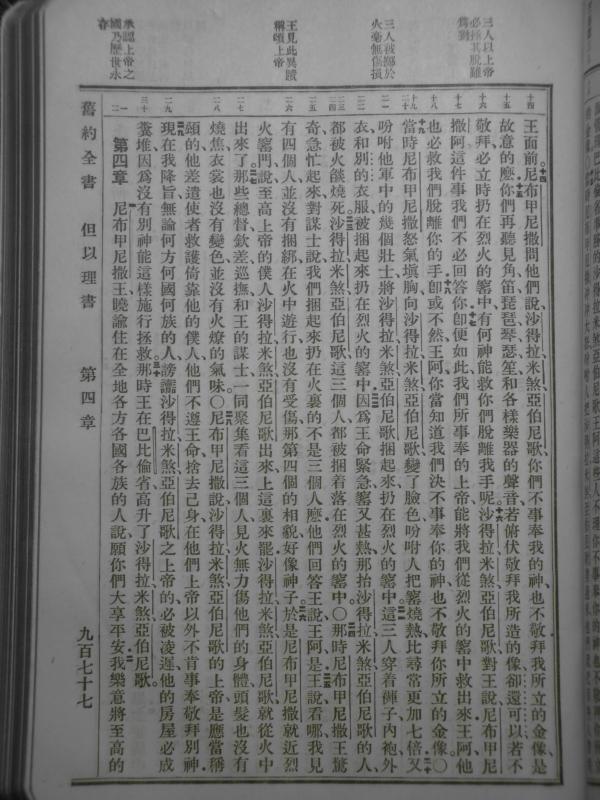 三人以上帝
必拯其脫離
爲對
三人被擲於
火毫無傷損
王見此異蹟
稱頌上帝
承認上帝之
國乃歷世永
存
王面前尼布甲尼撒問他們說沙得拉米煞亞伯尼歌你們不事奉我的神也不敬拜我所立的金像是
故意的麽你們再聽見角笛琵琶琴瑟笙和各樣樂器的聲音若俯伏敬拜我所造的像卻還可以若不
敬拜必立時扔在烈火的窰中有何神能救你們脫離我手呢沙得拉米煞亞伯尼歌對王說尼布甲尼
撒阿這件事我們不必回答你卽便如此我們所事奉的上帝能將我們從烈火的窰中救出來王阿他
也必救我們脫離你的手卽或不然王阿你當知道我們決不事奉你的神也不敬拜你所立的金像〇
當時尼布甲尼撒怒氣塡胸向沙得拉米煞亞伯尼歌變了臉色吩咐人把窰燒熱比尋常更加七倍又
吩咐他軍中的幾個壯士將沙得拉米煞亞伯尼歌捆起來扔在烈火的窰中這三人穿着褲子內袍外
衣和別的衣服被捆起來扔在烈火的窰中因爲王命緊急窰又甚熱那抬沙得拉米煞亞伯尼歌的人
都被火燄燒死沙得拉米煞亞伯尼歌這三個人都被捆着落在烈火的窰中〇那時尼布甲尼撒王驚
奇急忙起來對謀士說我們捆起來扔在火裏的不是三個人麽他們回答王說王阿是王說看哪我見
有四個人並沒有捆綁在火中遊行也沒有受傷那第四個的相貌好像神子於是尼布甲尼撒就近烈
火窰門說至高上帝的僕人沙得拉米煞亞伯尼歌出來上這裏來罷沙得拉米煞亞伯尼歌就從火中
出來了那些總督欽差巡撫和王的謀士一同聚集看這三個人見火無力傷他們的身體頭髮也沒有
燒焦衣裳也沒有變色並沒有火燎的氣味〇尼布甲尼撒說沙得拉米煞亞伯尼歌的上帝是應當稱
頌的他差遣使者救護倚靠他的僕人他們不遵王命捨去己身在他們上帝以外不肯事奉敬拜別神
現在我降旨無論何方何國何族的人謗讟沙得拉米煞亞伯尼歌之上帝的必被凌遲他的房屋必成
糞堆因爲沒有別神能這樣施行拯救那時王在巴比倫省高升了沙得拉米煞亞伯尼歌
第四章 尼布甲尼撒王曉諭住在全地各方各國各族的人說願你們大享平安我樂意將至高的
舊約全書 但以理書 第四章 九百七十七